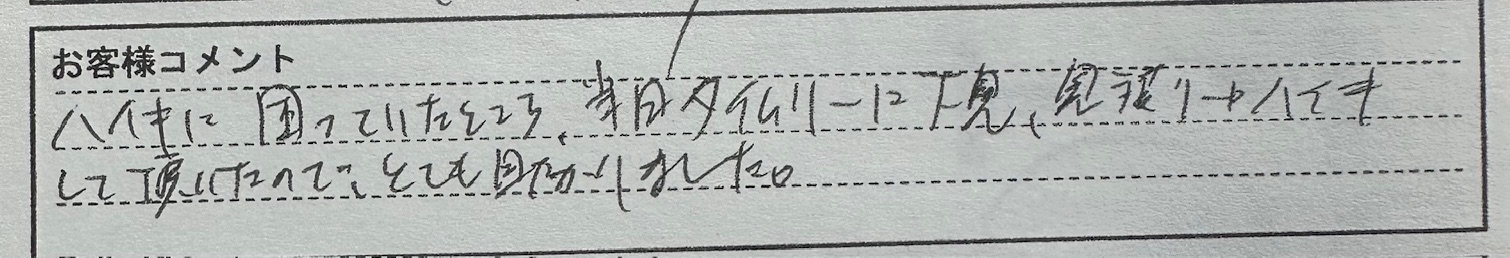 お客様コメント
ハイキに困っていたところ、当日タイムリーに下見、見積り→ハイキ
して頂いたので、とても助かりました。